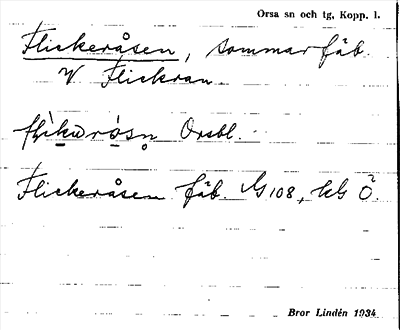 Orsa sn och tg, Kopp. l.
Flickeråsen, sommarfäb.
W Flickran.
Orsbl.
Flickeråsen fäb. G 108, kG Ö.
Bror Lindén 1934